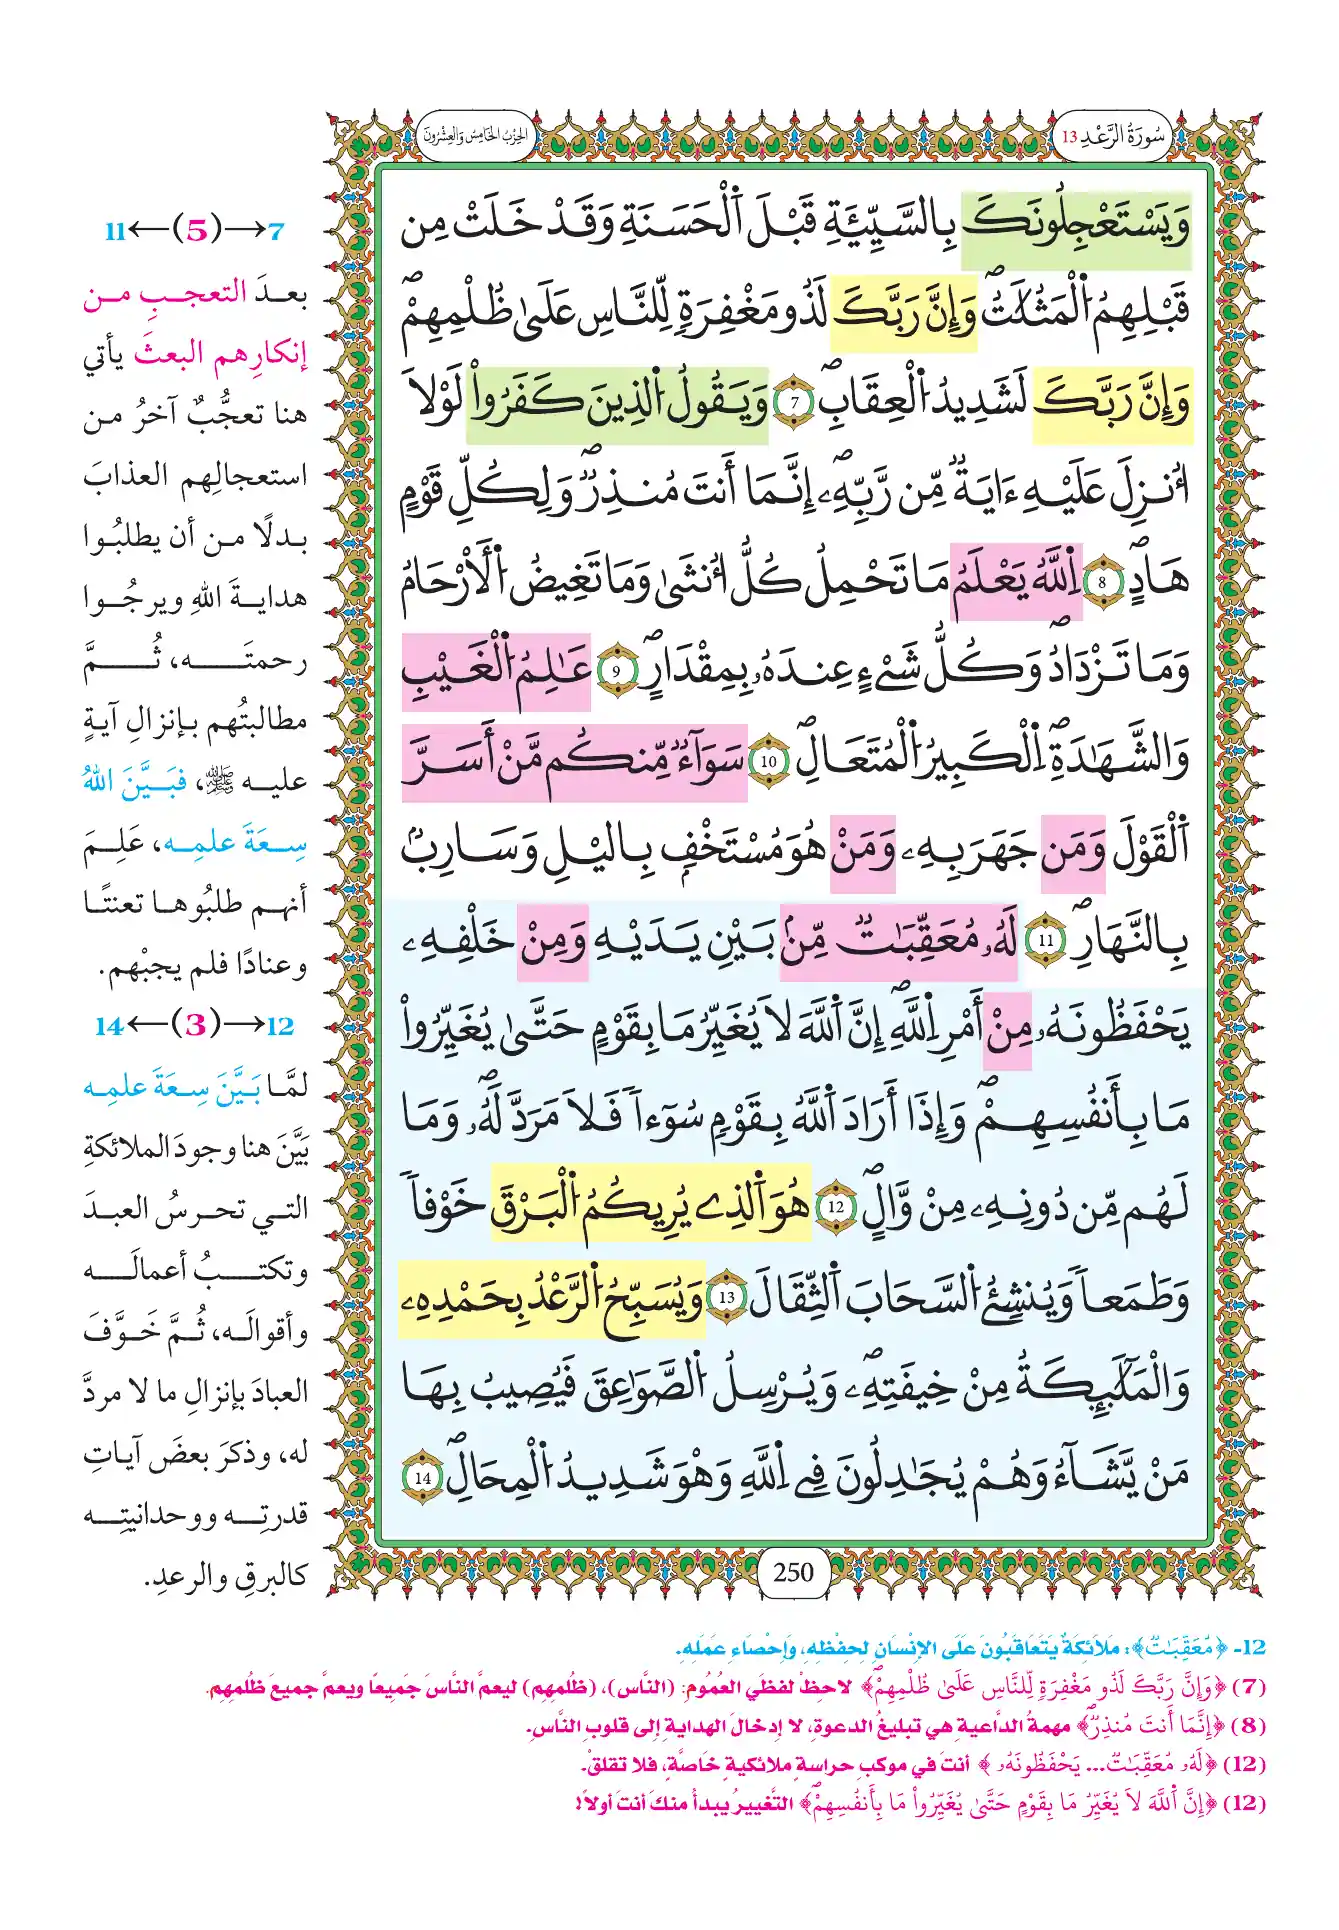 سُورَةُ الرَّعْدِ 13
الحِزْبُ الخَامِسُ وَالعِشْرُونَ
وَيَسْتَعْجِلُونَكَ بِالسَّيِّئَةِ قَبْلَ اَ۬لْحَسَنَةِ وَقَدْ خَلَتْ مِن
قَبْلِهِمُ اُ۬لْمَثُلَٰتُۖ وَإِنَّ رَبَّكَ لَذُو مَغْفِرَةٖ لِّلنَّاسِ عَلَىٰ ظُلْمِهِمْۖ
وَإِنَّ رَبَّكَ لَشَدِيدُ اُ۬لْعِقَابِۖ 7 وَيَقُولُ اُ۬لذِينَ كَفَرُواْ لَوْلَا
أُنزِلَ عَلَيْهِ ءَايَةٞ مِّن رَّبِّهِۦۖ إِنَّمَا أَنتَ مُنذِرٞۖ وَلِكُلِّ قَوْمٍ
هَادٍۖ 8 اِ۬للَّهُ يَعْلَمُ مَا تَحْمِلُ كُلُّ أُنثَىٰ وَمَا تَغِيضُ اُ۬لْأَرْحَامُ
وَمَا تَزْدَادُۖ وَكُلُّ شَےْءٍ عِندَهُۥ بِمِقْدَارٍۖ 9 عَٰلِمُ اُ۬لْغَيْبِ
وَالشَّهَٰدَةِۖ اِ۬لْكَبِيرُ اُ۬لْمُتَعَالِۖ 10 سَوَآءٞ مِّنكُم مَّنْ أَسَرَّ
اَ۬لْقَوْلَ وَمَن جَهَرَ بِهِۦ وَمَنْ هُوَ مُسْتَخْفِۢ بِاليْلِ وَسَارِبُۢ
بِالنَّهَارِۖ 11 لَهُۥ مُعَقِّبَٰتٞ مِّنۢ بَيْنِ يَدَيْهِ وَمِنْ خَلْفِهِۦ
يَحْفَظُونَهُۥ مِنْ أَمْرِ اِ۬للَّهِۖ إِنَّ اَ۬للَّهَ لَا يُغَيِّرُ مَا بِقَوْمٍ حَتَّىٰ يُغَيِّرُواْ
مَا بِأَنفُسِهِمْۖ وَإِذَا أَرَادَ اَ۬للَّهُ بِقَوْمٖ سُوٓءاٗ فَلَا مَرَدَّ لَهُۥۖ وَمَا
لَهُم مِّن دُونِهِۦ مِنْ وَّالٍۖ 12 هُوَ اَ۬لذِے يُرِيكُمُ اُ۬لْبَرْقَ خَوْفاٗ
وَطَمَعاٗ وَيُنشِئُ اُ۬لسَّحَابَ اَ۬لثِّقَالَ 13 وَيُسَبِّحُ اُ۬لرَّعْدُ بِحَمْدِهِۦ
وَالْمَلَٰٓئِكَةُ مِنْ خِيفَتِهِۦۖ وَيُرْسِلُ اُ۬لصَّوَٰعِقَ فَيُصِيبُ بِهَا
مَنْ يَّشَآءُ وَهُمْ يُجَٰدِلُونَ فِے اِ۬للَّهِ وَهْوَ شَدِيدُ اُ۬لْمِحَالِۖ 14
250
7→(5)←11
بعدَ التعجبِ من
إنكارِهم البعثَ يأتي
هنا تعجُّبٌ آخرُ من
استعجالِهم العذابَ
بدلًا من أن يطلبُوا
هدايةَ اللهِ ويرجُوا
رحمتَه، ثُمَّ
مطالبتُهم بإنزالِ آيةٍ
عليه ﷺ، فبَيَّنَ اللهُ
سِعَةَ علمِه، عَلِمَ
أنهم طلبُوها تعنتًا
وعنادًا فلم يجبْهم.
12→(3)←14
لمَّا بَيَّنَ سِعَةَ علمِه
بَيَّنَ هنا وجودَ الملائكةِ
التي تحرسُ العبدَ
وتكتبُ أعمالَه
وأقوالَه، ثُمَّ خَوَّفَ
العبادَ بإنزالِ ما لا مردَّ
له، وذكرَ بعضَ آياتِ
قدرتِه ووحدانيتِه
كالبرقِ والرعدِ.
12- ﴿مُعَقِّبَٰتٞ﴾: مَلَائِكَةٌ يَتَعَاقَبُونَ عَلَى الإِنْسَانِ لِحِفْظِهِ، وَإِحْصَاءِ عَمَلِهِ.
(7) ﴿وَإِنَّ رَبَّكَ لَذُو مَغْفِرَةٖ لِّلنَّاسِ عَلَىٰ ظُلْمِهِمْۖ﴾ لاحِظْ لفظَي العُمُومِ: (النَّاس)، (ظُلمِهِم) ليعمَّ النَّاسَ جَمِيعًا ويعمَّ جميعَ ظُلمِهِم.
(8) ﴿إِنَّمَا أَنتَ مُنذِرٞۖ﴾ مهمةُ الدَّاعيةِ هي تبليغُ الدعوةِ، لا إدخالَ الهدايةِ إلى قلوبِ النَّاسِ.
(12) ﴿لَهُۥ مُعَقِّبَٰتٞ... يَحْفَظُونَهُۥ﴾ أنتَ في موكبِ حراسةٍ ملائكيةٍ خَاصَّةٍ، فلا تقلقْ.
(12) ﴿إِنَّ اَ۬للَّهَ لَا يُغَيِّرُ مَا بِقَوْمٍ حَتَّىٰ يُغَيِّرُواْ مَا بِأَنفُسِهِمْۖ﴾ التَّغييرُ يبدأُ منكَ أنتَ أولًا!